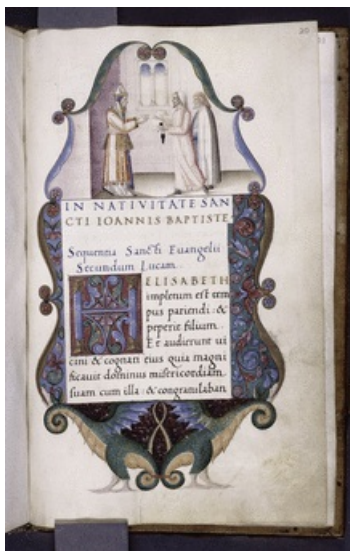 IN NATIVITATE SAN
CTI IOANNIS BAPTISTE·
Sequentia Sancti Euangelii
Secundum Lucam
ELISABETH
impletum est tem
pus pariendi: &
peperit filium.
Et audierunt ui
cini & cognati eius quia magni
ficauit dominus misericordiam
suam cum illa: & congratulaban